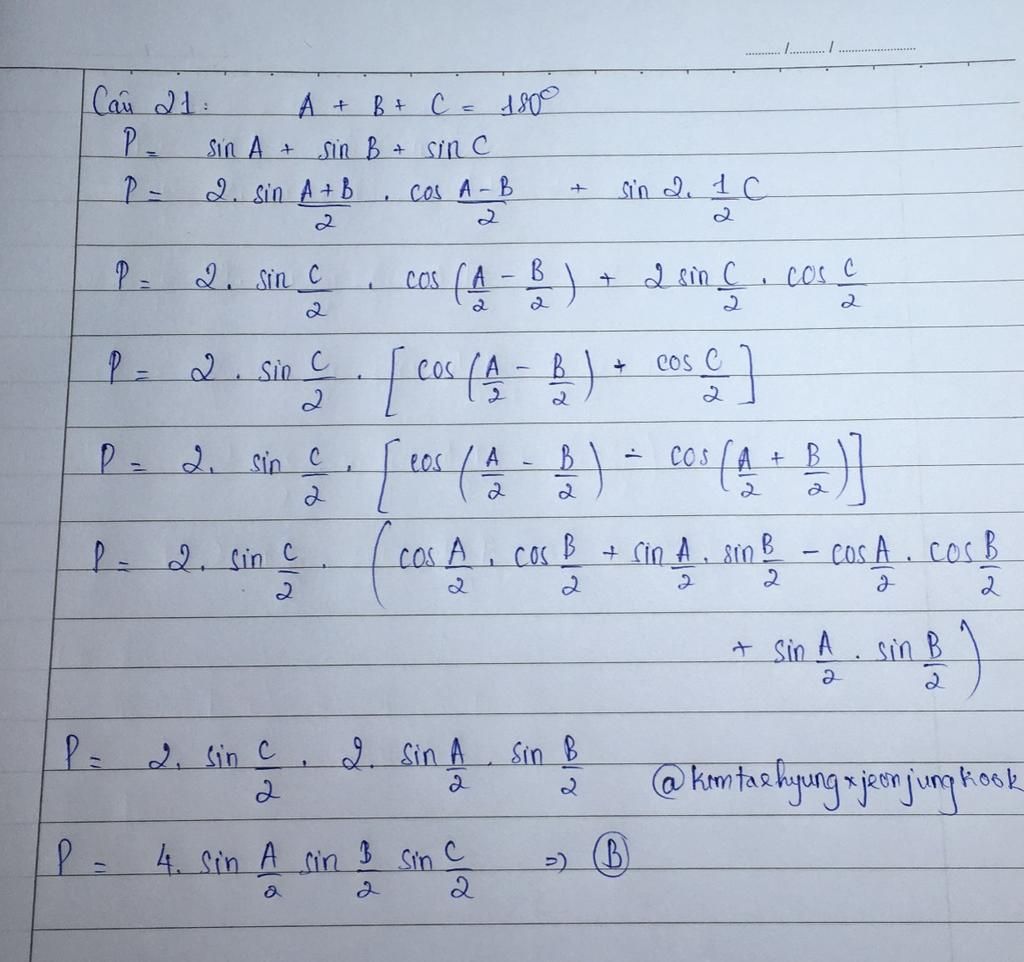 ...../...../..........
Câu 21: A + B + C = 180°
P = sin A + sin B + sin C
P = 2. sin (A+B)/2 . cos (A-B)/2 + sin 2. 1/2 C
P = 2. sin C/2 . cos (A/2 - B/2) + 2 sin C/2 . cos C/2
P = 2 . sin C/2 . [cos (A/2 - B/2) + cos C/2]
P = 2. sin C/2 . [cos (A/2 - B/2) - cos (A/2 + B/2)]
P = 2. sin C/2 . (cos A/2 . cos B/2 + sin A/2 . sin B/2 - cos A/2 . cos B/2
+ sin A/2 . sin B/2)
P = 2. sin C/2 . 2. sin A/2 . sin B/2
@kimtaehyungxjeonjungkook
P = 4. sin A/2 sin B/2 sin C/2 => B